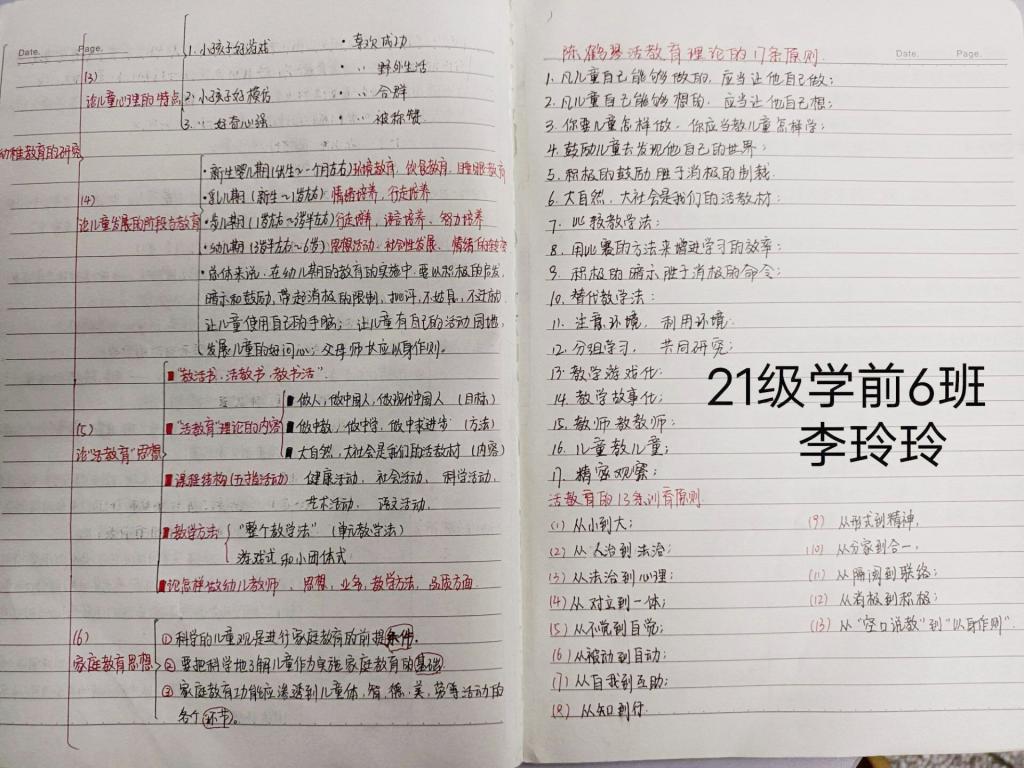 Date.
Page.
幼稚教育的研究
(3)
论儿童心理的特点
1. 小孩子好游戏
2. 小孩子好模仿
3. 〃 好奇心强
· 喜欢成功
· 〃 野外生活
· 〃 合群
· 〃 被称赞
(4)
论儿童发展的阶段与教育
· 新生婴儿期(出生~一个月左右)环境教育、饮食教育、睡眠教育
· 乳儿期(新生~1岁左右)情绪培养，行走培养
· 步儿期(1岁左右~3岁半左右)行走培养，语言培养、智力培养
· 幼儿期(3岁半左右~6岁)思想活动、社会性发展、情绪的转变
· 总体来说，在幼儿期的教育的实施中，要以积极的启发、
暗示和鼓励，带起消极的限制，批评，不姑息，不迁就
让儿童使用自己的手脑；让儿童有自己的活动园地，
发展儿童的好问心；父母师长应以身作则。
(5)
论"活教育"思想
■"教活书，活教书，教书活".
■"活教育"理论的内容
■ 做人，做中国人，做现代中国人 (目标)
■ 做中教，做中学，做中求进步 (方法)
■ 大自然，大社会是我们的活教材 (内容)
■ 课程结构(五指活动) 健康活动、社会活动、科学活动、
艺术活动、语文活动.
■ 教学方法
"整个教学法" (单元教学法)
游戏式和小团体式
■ 论怎样做幼儿教师、思想，业务，教学方法，品质方面
(6)
家庭教育思想
① 科学的儿童观是进行家庭教育的前提条件。
② 要把科学地了解儿童作为实施家庭教育的基础
③ 家庭教育功能应渗透到儿童体，智，德，美，劳等活动的
各个环节。
Date.
Page.
陈鹤琴活教育理论的17条原则
1. 凡儿童自己能够做的，应当让他自己做；
2. 凡儿童自己能够想的，应当让他自己想；
3. 你要儿童怎样做，你应当教儿童怎样学；
4. 鼓励儿童去发现他自己的世界；
5. 积极的鼓励胜于消极的制裁.
6. 大自然，大社会是我们的活教材；
7. 比较教学法；
8. 用比赛的方法来增进学习的效率；
9. 积极的暗示胜于消极的命令；
10. 替代教学法；
11. 注意环境，利用环境；
12. 分组学习，共同研究；
13. 教学游戏化；
14. 教学故事化；
15. 教师教教师；
16. 儿童教儿童；
17. 精密观察；
21级学前6班
李玲玲
活教育的13条训育原则
(1) 从小到大；
(2) 从人治到法治；
(3) 从法治到心理；
(4) 从对立到一体；
(5) 从不觉到自觉；
(6) 从被动到自动；
(7) 从自我到互助；
(8) 从知到行.
(9) 从形式到精神，
(10) 从分家到合一，
(11) 从隔阂到联络；
(12) 从消极到积极；
(13) 从"空口说教"到"以身作则".